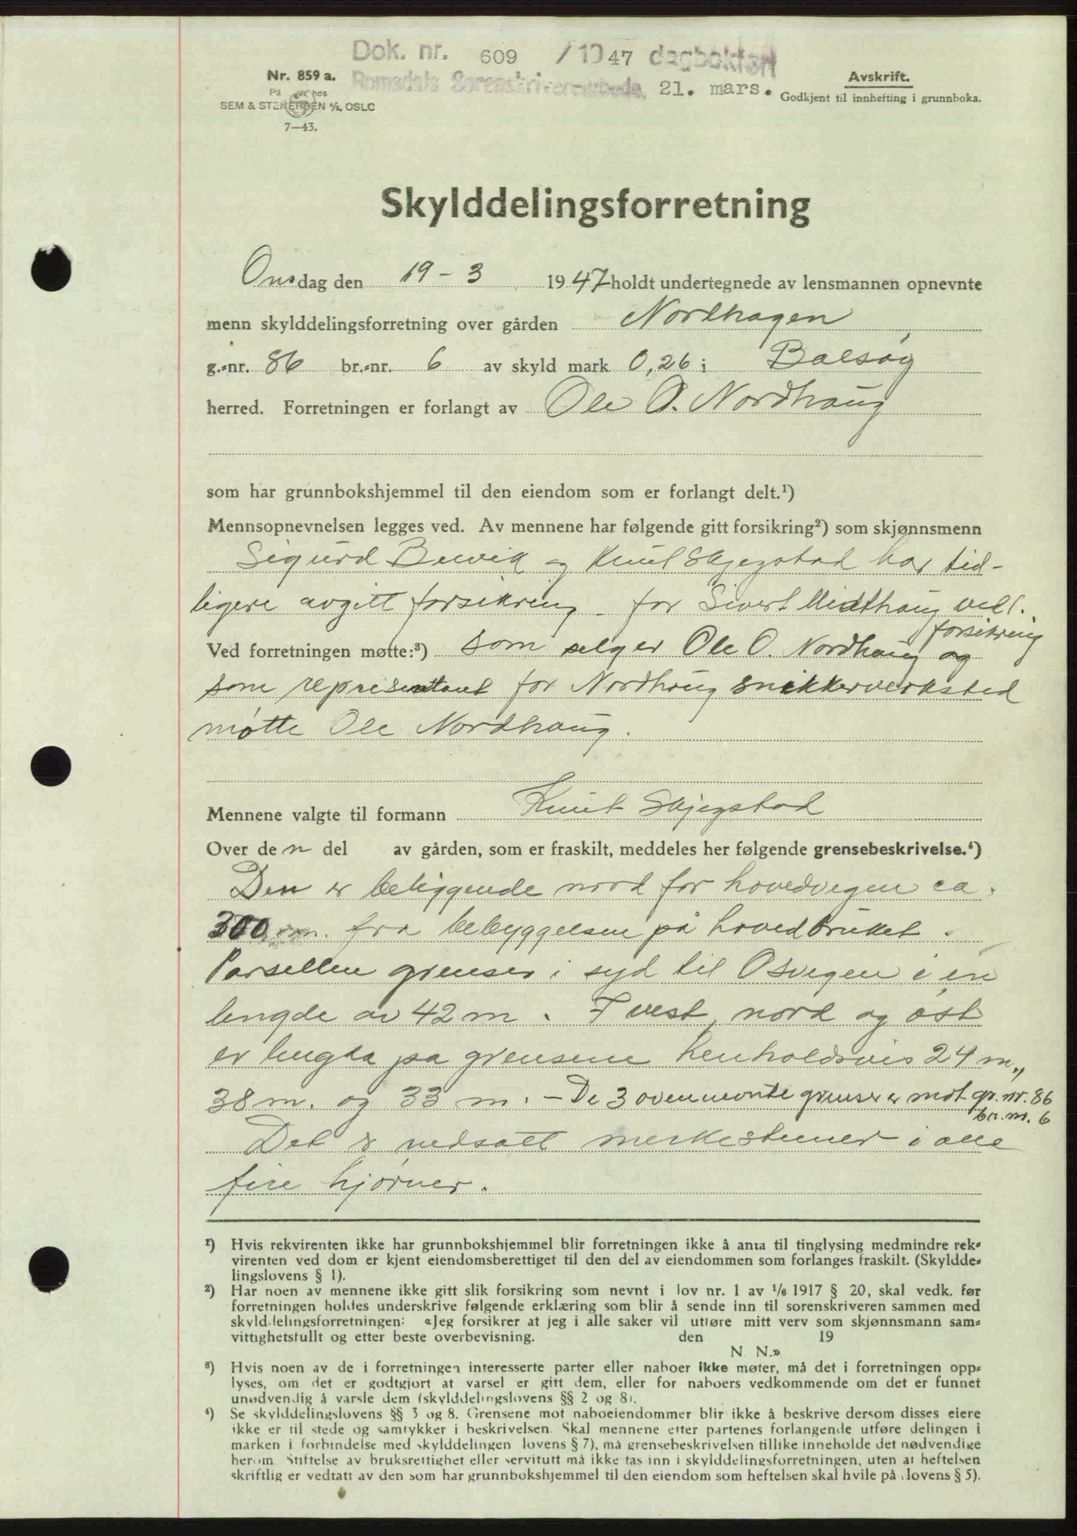 Dok. nr. 609 / 19 47 dagbokført
Romsdals Sorenskriverembede, 21. mars.
Nr. 859 a.
På hos
SEM & STENERSEN A/S, OSLO
7—43.
Avskrift.
Godkjent til innhefting i grunnboka.
Skylddelingsforretning
Onsdag den 19-3 1947 holdt undertegnede av lensmannen opnevnte
menn skylddelingsforretning over gården Nordhagen
g.-nr. 86 br.-nr. 6 av skyld mark 0,26 i Bolsøy
herred. Forretningen er forlangt av Ole O. Nordhaug
som har grunnbokshjemmel til den eiendom som er forlangt delt.¹)
Mennsopnevnelsen legges ved. Av mennene har følgende gitt forsikring²) som skjønnsmenn
Sigurd Bervik og Knut Skjegstad har tid-
ligere avgitt forsikring - for Sivert Midthaug vedl.
forsikring
Ved forretningen møtte:³) som selger Ole O. Nordhaug og
som representant for Nordhaug snikkerverksted
møtte Ole Nordhaug.
Mennene valgte til formann Knut Skjegstad
Over de n del av gården, som er fraskilt, meddeles her følgende grensebeskrivelse.⁴)
Den er beliggende nord for hovedvegen ca.
300 m. fra bebyggelsen på hovedbruket.
Parsellen grenser i syd til Osvegen i en
lengde av 42 m. I vest, nord og øst
er lengda på grensene henholdsvis 24 m.,
38 m. og 33 m. - De 3 ovennevnte grenser er mot gr. nr. 86
br. nr. 6
Det er nedsatt merkestener i alle
fire hjørner.
¹) Hvis rekvirenten ikke har grunnbokshjemmel blir forretningen ikke å anta til tinglysing medmindre rek-
virenten ved dom er kjent eiendomsberettiget til den del av eiendommen som forlanges fraskilt. (Skyldde-
lingslovens § 1).
²) Har noen av mennene ikke gitt slik forsikring som nevnt i lov nr. 1 av 1/6 1917 § 20, skal vedk. før
forretningen holdes underskrive følgende erklæring som blir å sende inn til sorenskriveren sammen med
skylddelingsforretningen: «Jeg forsikrer at jeg i alle saker vil utføre mitt verv som skjønnsmann sam-
vittighetsfullt og etter beste overbevisning. den 19
N. N.»
³) Hvis noen av de i forretningen interesserte parter eller naboer ikke møter, må det i forretningen opp-
lyses, om det er godtgjort at varsel er gitt dem, eller for naboers vedkommende om det er funnet
unødvendig å varsle dem (skylddelingslovens §§ 2 og 8).
⁴) Se skylddelingslovens §§ 3 og 8. Grensene mot naboeiendommer blir ikke å beskrive dersom disses eiere
ikke er til stede og samtykker i beskrivelsen. Skal mennene etter partenes forlangende utføre delingen i
marken i forbindelse med skylddelingen (lovens § 7), må grensebeskrivelsen tillike inneholde det nødvendige
herom. Stiftelse av bruksrettighet eller servitutt må ikke tas inn i skylddelingsforretningen, uten at heftelsen
skriftlig er vedtatt av den som har grunnbokshjemmel til den eiendom som heftelsen skal hvile på (lovens § 5).